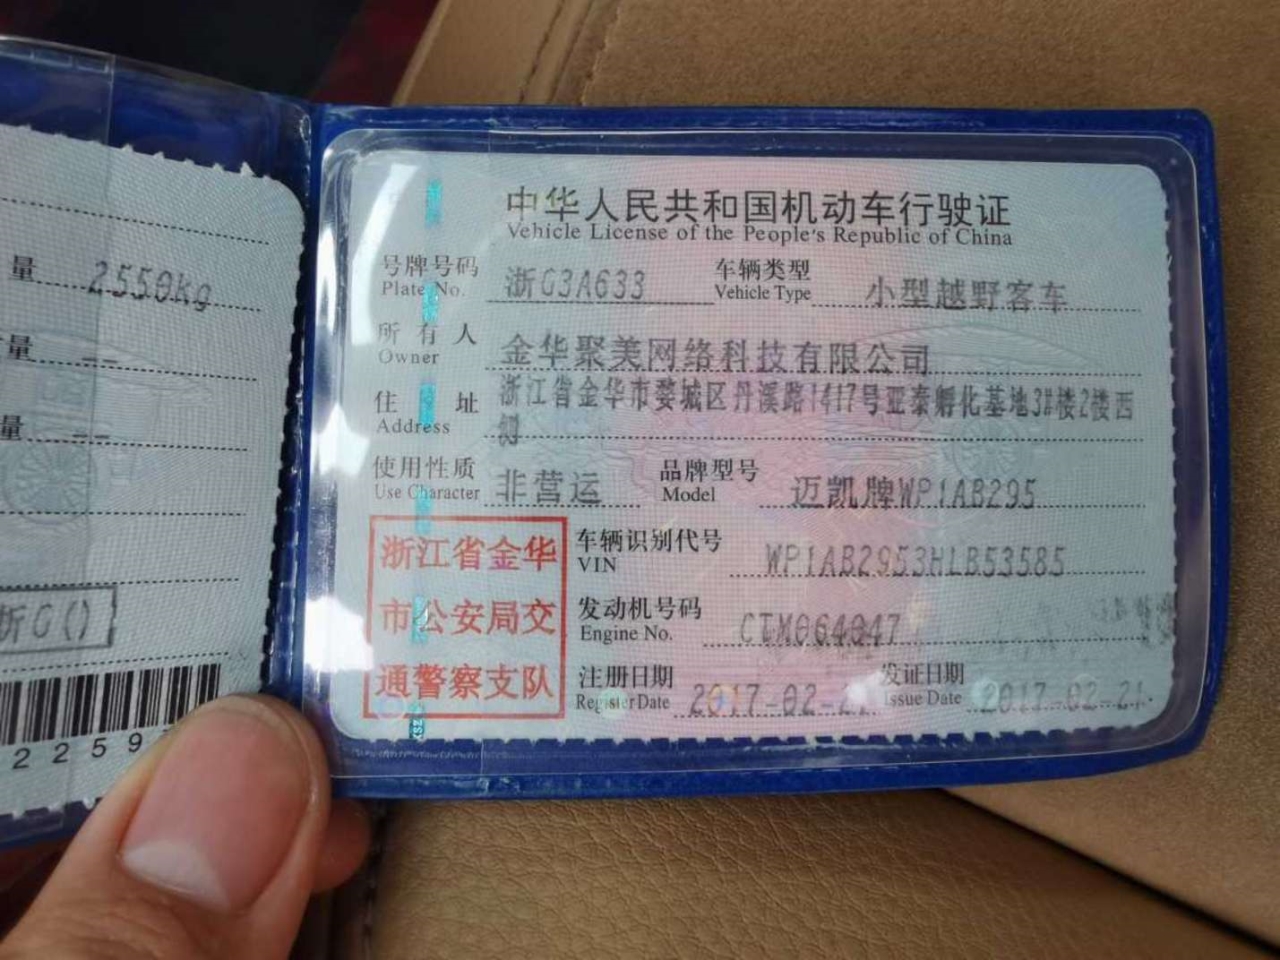 量 2550kg
量 --
量 --
浙G()
2259
中华人民共和国机动车行驶证
Vehicle License of the People's Republic of China
号牌号码 浙G3A633 车辆类型 小型越野客车
Plate No. Vehicle Type
所有人 金华聚美网络科技有限公司
Owner
住址 浙江省金华市婺城区丹溪路1417号亚泰孵化基地3#楼2楼西
Address 侧
使用性质 非营运 品牌型号 迈凯牌WP1AB295
Use Character Model
浙江省金华
市公安局交
通警察支队
车辆识别代号 WP1AB2953HLB53585
VIN
发动机号码 CTM064047
Engine No.
注册日期 2017-02-21 发证日期 2017-02-21
Register Date Issue Date